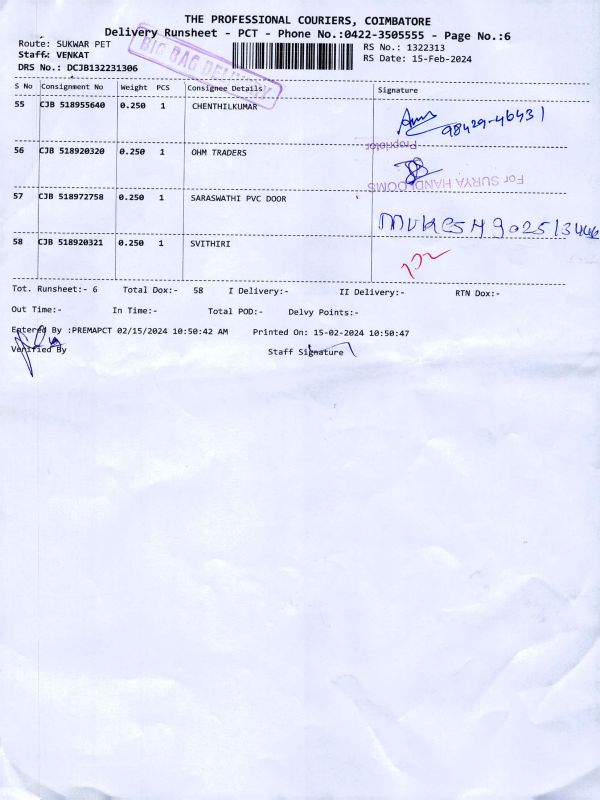 THE PROFESSIONAL COURIERS, COIMBATORE
Delivery Runsheet - PCT - Phone No.:0422-3505555 - Page No.:6
Route: SUKWAR PET RS No.: 1322313
Staff: VENKAT RS Date: 15-Feb-2024
DRS No.: DCJB132231306
BIG BAG DELIVERY
S No Consignment No Weight PCS Consignee Details Signature
55 CJB 518955640 0.250 1 CHENTHILKUMAR
98429-46431
Proprietor
56 CJB 518920320 0.250 1 OHM TRADERS
For SURYA HANDLOOMS
57 CJB 518972758 0.250 1 SARASWATHI PVC DOOR
MUKESH
58 CJB 518920321 0.250 1 SVITHIRI
Tot. Runsheet:- 6 Total Dox:- 58 I Delivery:- II Delivery:- RTN Dox:-
Out Time:- In Time:- Total POD:- Delvy Points:-
Entered By :PREMAPCT 02/15/2024 10:50:42 AM Printed On: 15-02-2024 10:50:47
Verified By Staff Signature